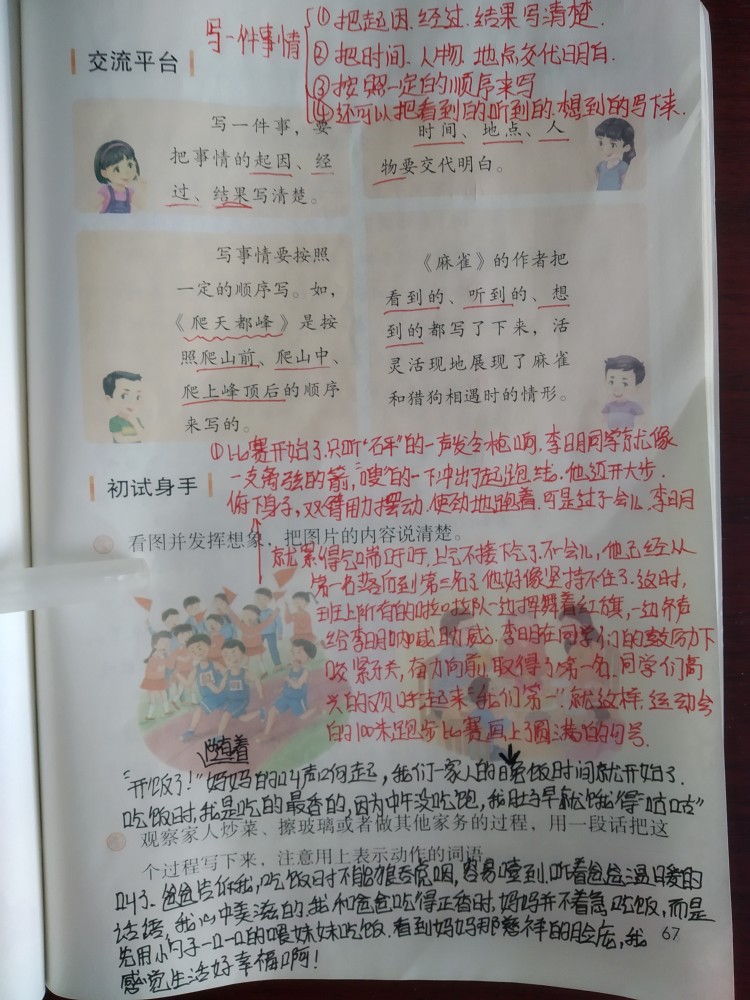 写一件事情
①把起因.经过.结果写清楚.
②把时间.人物.地点交代明白.
③按照一定的顺序来写
④还可以把看到的听到的.想到的写下来.
交流平台
写一件事，要
把事情的起因、经
过、结果写清楚。
时间、地点、人
物要交代明白。
写事情要按照
一定的顺序写。如，
《爬天都峰》是按
照爬山前、爬山中、
爬上峰顶后的顺序
来写的。
《麻雀》的作者把
看到的、听到的、想
到的都写了下来，活
灵活现地展现了麻雀
和猎狗相遇时的情形。
①比赛开始了.只听"砰"的一声发令枪响.李明同学就像
一支离弦的箭,"嗖"的一下冲出了起跑线.他迈开大步.
俯下身子,双臂用力摆动.使劲地跑着.可是过了一会儿.李明
初试身手
看图并发挥想象，把图片的内容说清楚。
就累得气喘吁吁.上气不接下气了.不一会儿,他已经从
第一名落后到第三名了.他好像坚持不住了.这时,
班上所有的啦啦队一边挥舞着红旗,一边齐声
给李明呐喊助威.李明在同学们的鼓励下
咬紧牙关,奋力向前,取得了第一名.同学们高
兴的欢呼起来"我们第一".就这样.运动会
的100米跑步比赛画上了圆满的句号.
随着
"开饭了!"妈妈的叫声响起,我们一家人的晚饭时间就开始了.
吃饭时,我是吃的最香的,因为中午没吃饱,我肚子早就饿得"咕咕"
观察家人炒菜、擦玻璃或者做其他家务的过程，用一段话把这
个过程写下来，注意用上表示动作的词语
叫了.爸爸告诉我,吃饭时不能狼吞虎咽,容易噎到.听着爸爸温暖的
话语.我心中美滋的.我和爸爸吃得正香时,妈妈并不着急吃饭,而是
先用小勺子一口一口的喂妹妹吃饭.看到妈妈那慈祥的脸庞,我
67
感觉生活好幸福啊!